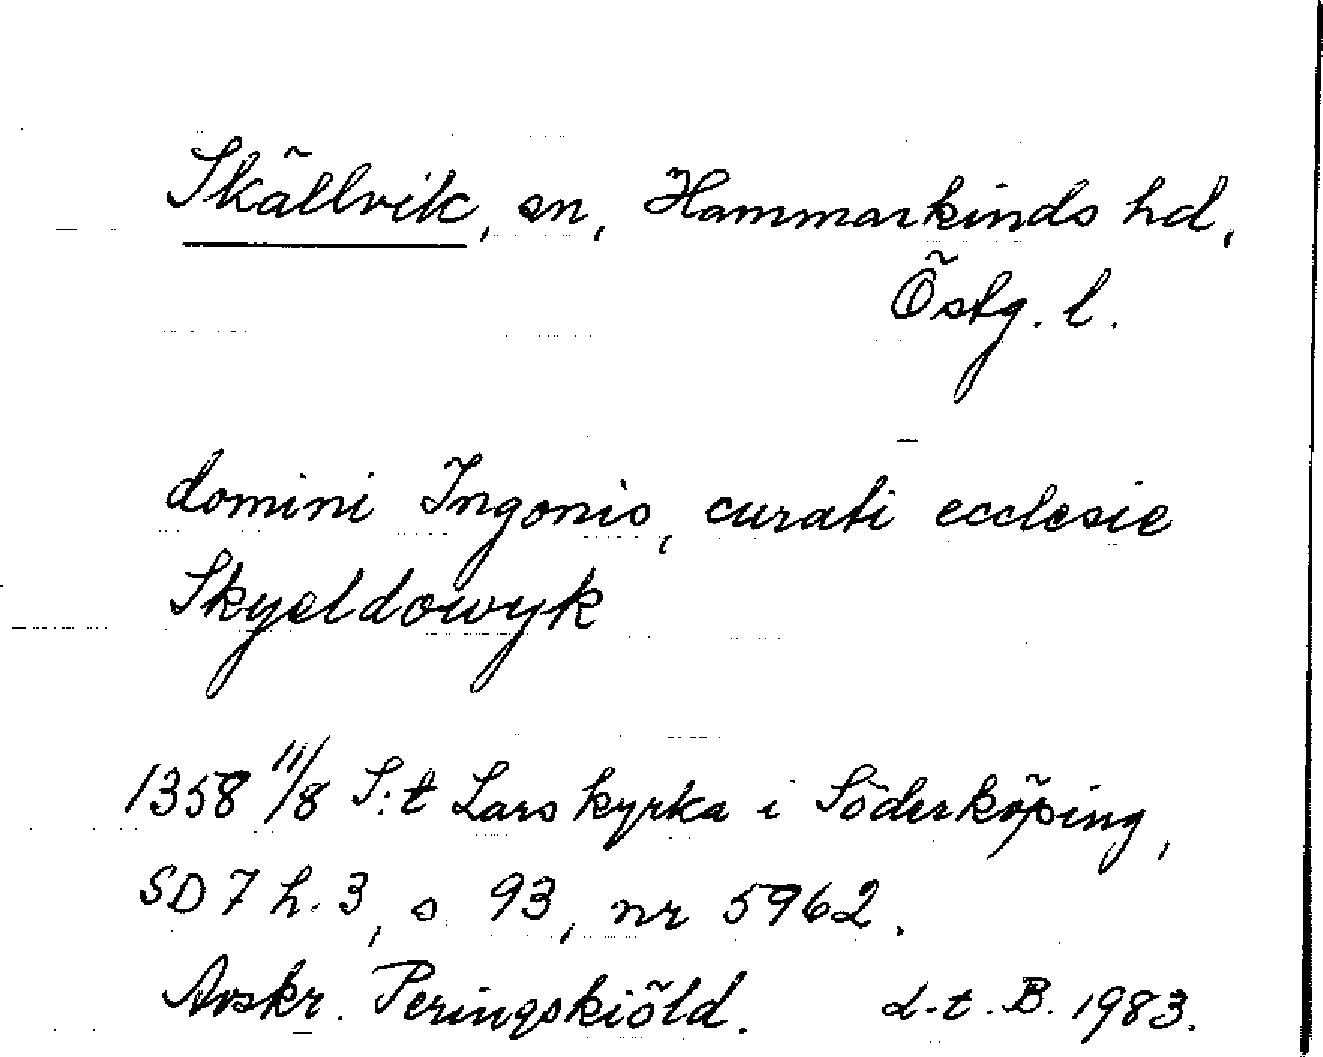 Skällvik, sn, Hammarkinds hd,
Östg. l.
domini Ingonis, curati ecclesie
Skyeldowyk
1358 11/8 S:t Lars kyrka i Söderköping,
SD 7 h. 3, s 93, nr 5962.
Avskr. Peringskiöld. L.t. B. 1983.